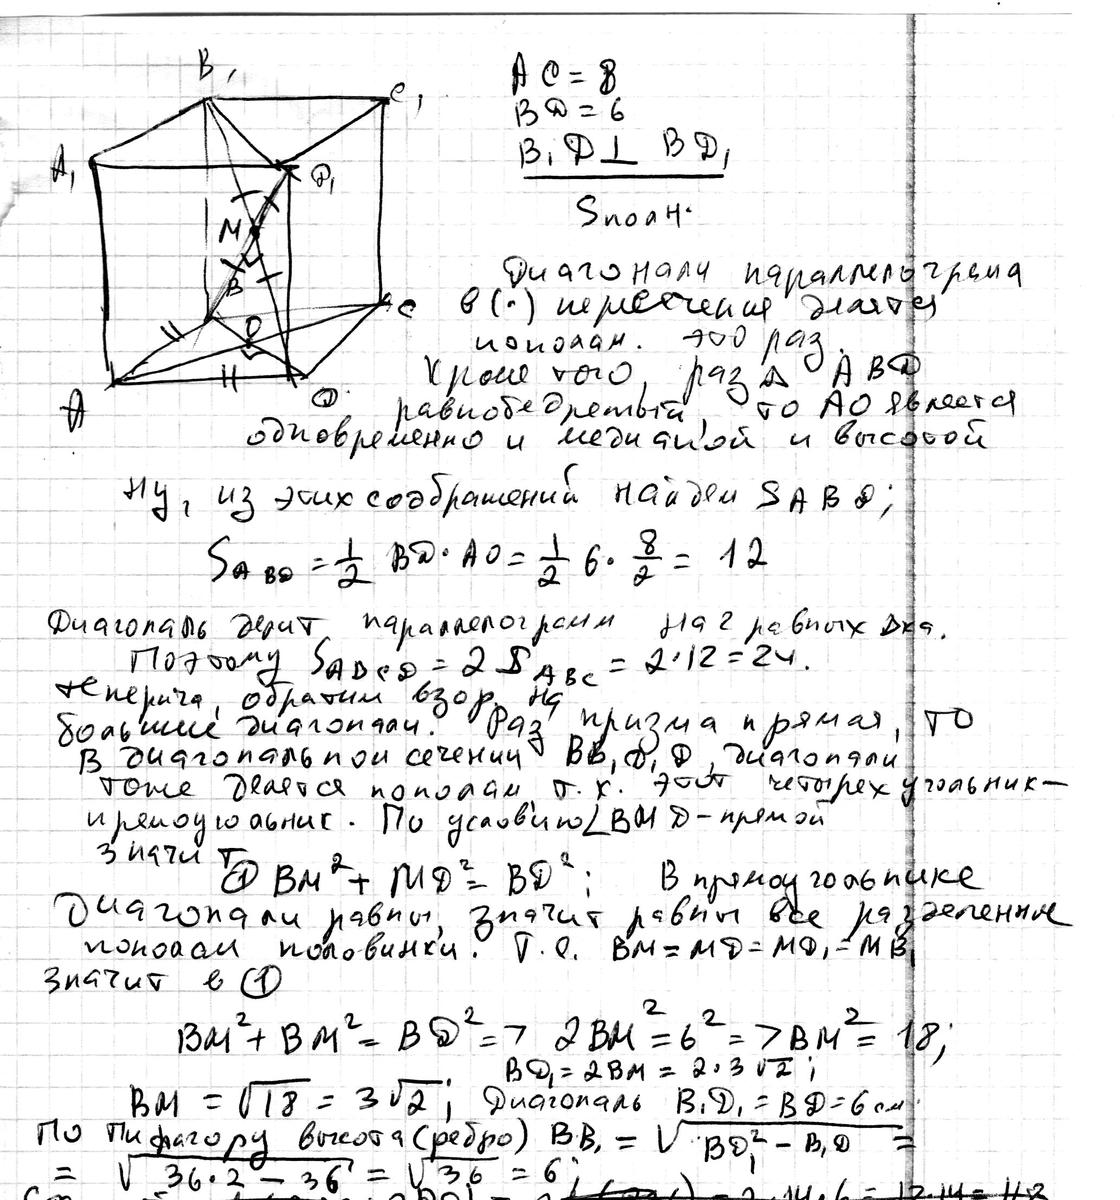 B₁
C₁
A₁
D₁
M
B
C
O
A
D
AC = 8
BD = 6
B₁D ⊥ BD₁
Sполн.
Диагонали параллелограма
в (·) пересечения делятся
пополам. это раз.
Кроме того, раз Δ ABD
равнобедреный, то AO является
одновременно и медианой и высотой
Ну, из этих соображений найдем SABD;
SABD = 1/2 BD · AO = 1/2 6 · 8/2 = 12
Диагональ делит параллелограмм на 2 равных Δка.
Поэтому SABCD = 2 SABC = 2·12 = 24.
теперича, обратим взор на
большие диагонали. Раз призма прямая, то
в диагональном сечении BB₁D₁D, диагонали
тоже делятся пополам т.к. этот четырехугольник —
прямоугольник. По условию ∠BMD - прямой
значит
① BM² + MD² = BD²; В прямоугольнике
Диагонали равны, значит равны все разделенные
пополам половинки. Т.е. BM = MD = MD₁ = MB₁
значит в ①
BM² + BM² = BD² => 2BM² = 6² => BM² = 18;
BD₁ = 2BM = 2·3√2;
BM = √18 = 3√2; Диагональ B₁D₁ = BD = 6 см
По Пифагору высота (ребро) BB₁ = √(BD₁² - B₁D) =
= √(36·2 - 36) = √36 = 6